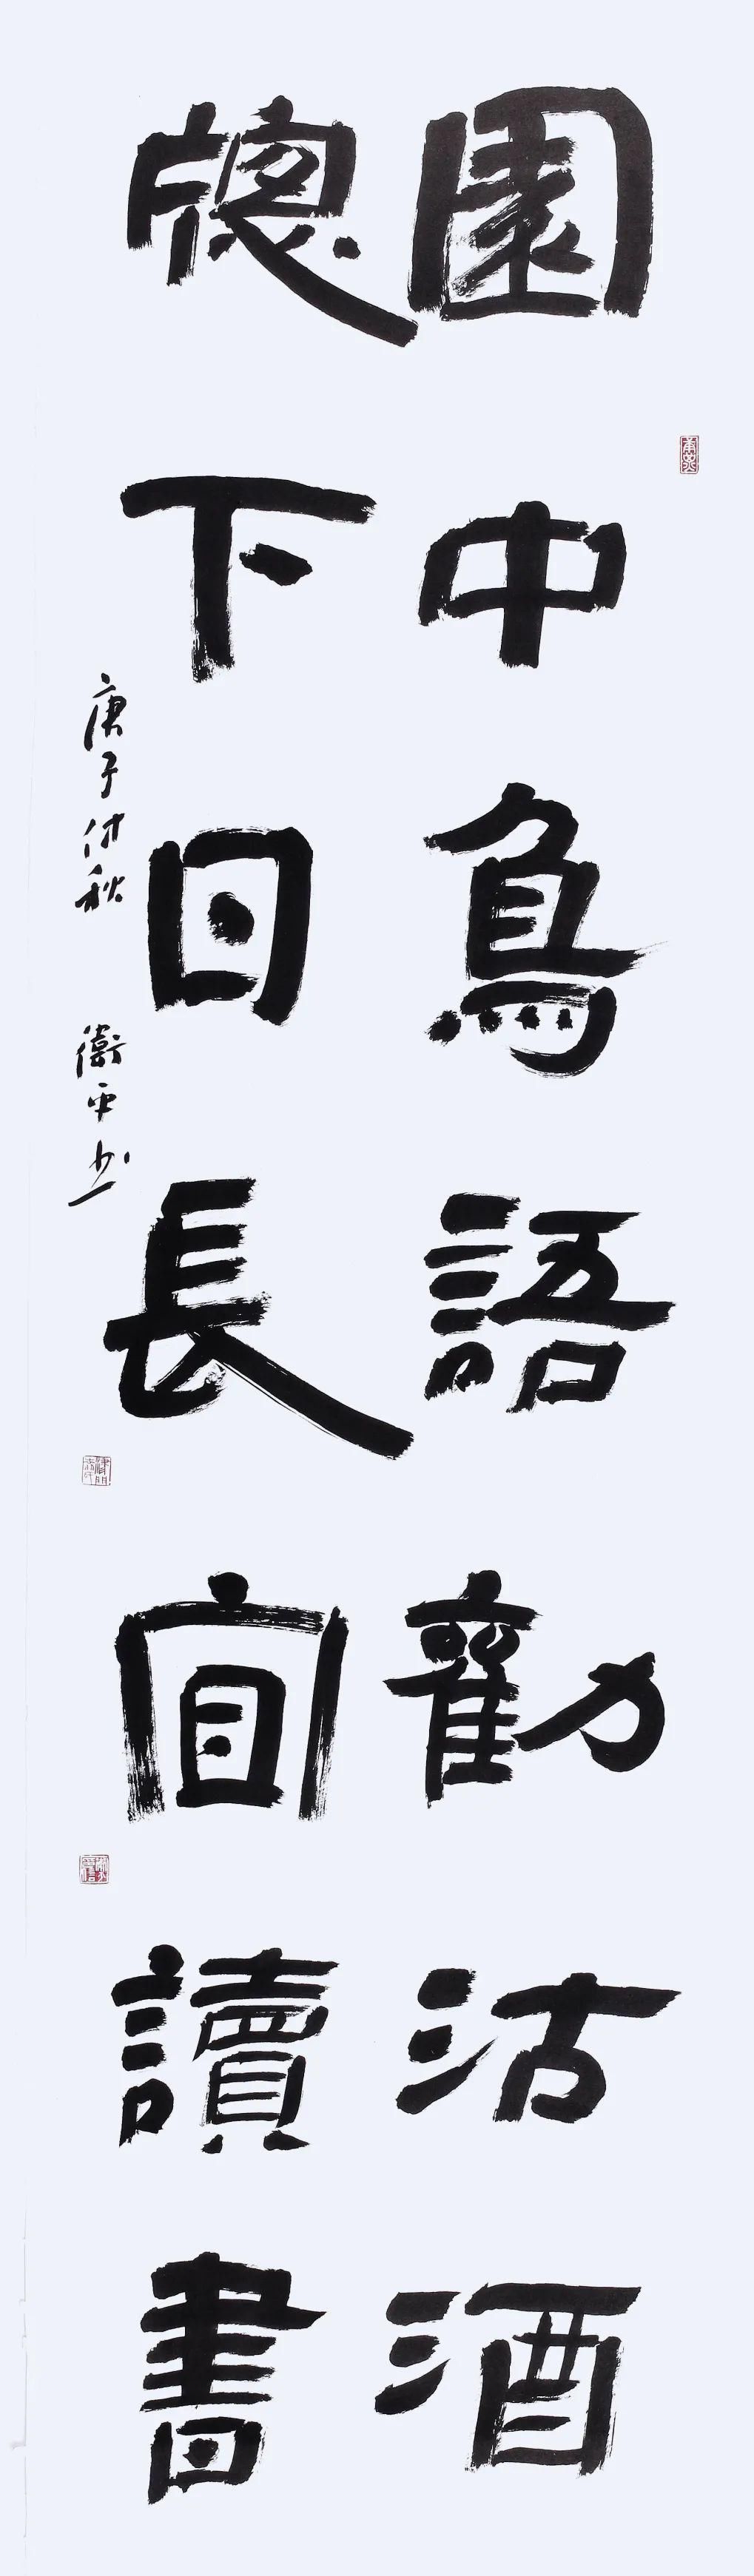 園中鳥語勸沽酒
牕下日長宜讀書
庚子仲秋
衛平书